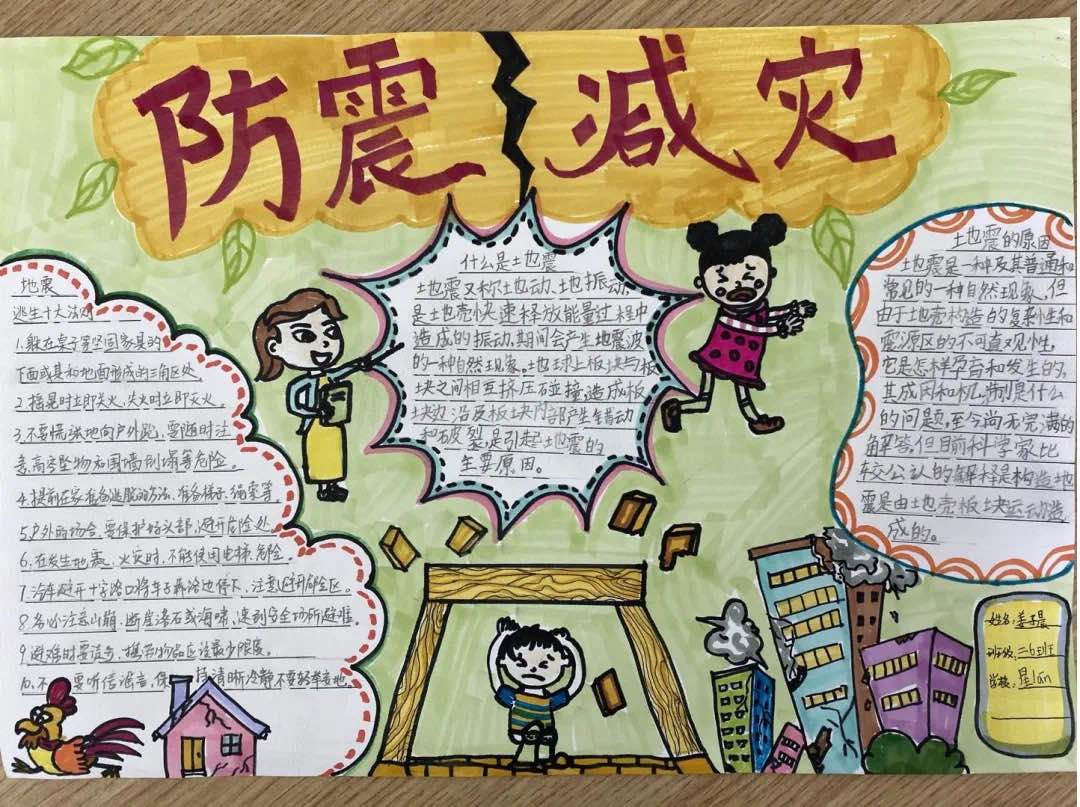 防震减灾
地震
逃生十大法则
1.躲在桌子等坚固家具的
下面或是和地面形成的三角区处
2.摇晃时立即关火,失火时立即灭火。
3.不要慌张地向户外跑,要随时注
意高空坠物和围墙倒塌等危险。
4.提前在家准备逃脱的方法,准备梯子、绳索等。
5.户外的场合,要保护好头部,避开危险处
6.在发生地震、火灾时,不能使用电梯,危险。
7.汽车避开十字路口将车子靠路边停下,注意避开
8.务必注意山崩、断崖落石或海啸,速到安全场所避难。
9.避难时要徒步,携带物品应该最少限度。
10.不要听信谣言,保持清晰冷静不要轻举妄动
什么是土也震
土也震又称土也动、土也振动,
是土也壳快速释放能量过程中
造成的振动,期间会产生地震波
的一种自然现象,土也球上板块与板
块之间相互挤压碰撞,造成板
块边沿及板块内部产生错动
和破裂是引起土也震的
主要原因。
土也震的原因
土也震是一种及其普通和
常见的一种自然现象,但
由于土也壳构造的复杂性和
震源区的不可直观性,
它是怎样孕育和发生的,
其成因和机制是什么
的问题,至今尚无完满的
解答,但目前科学家比
较公认的解释是构造地
震是由土也壳板块运动造
成的。
姓名:姜子晨
班级:二6班
学校:星lán